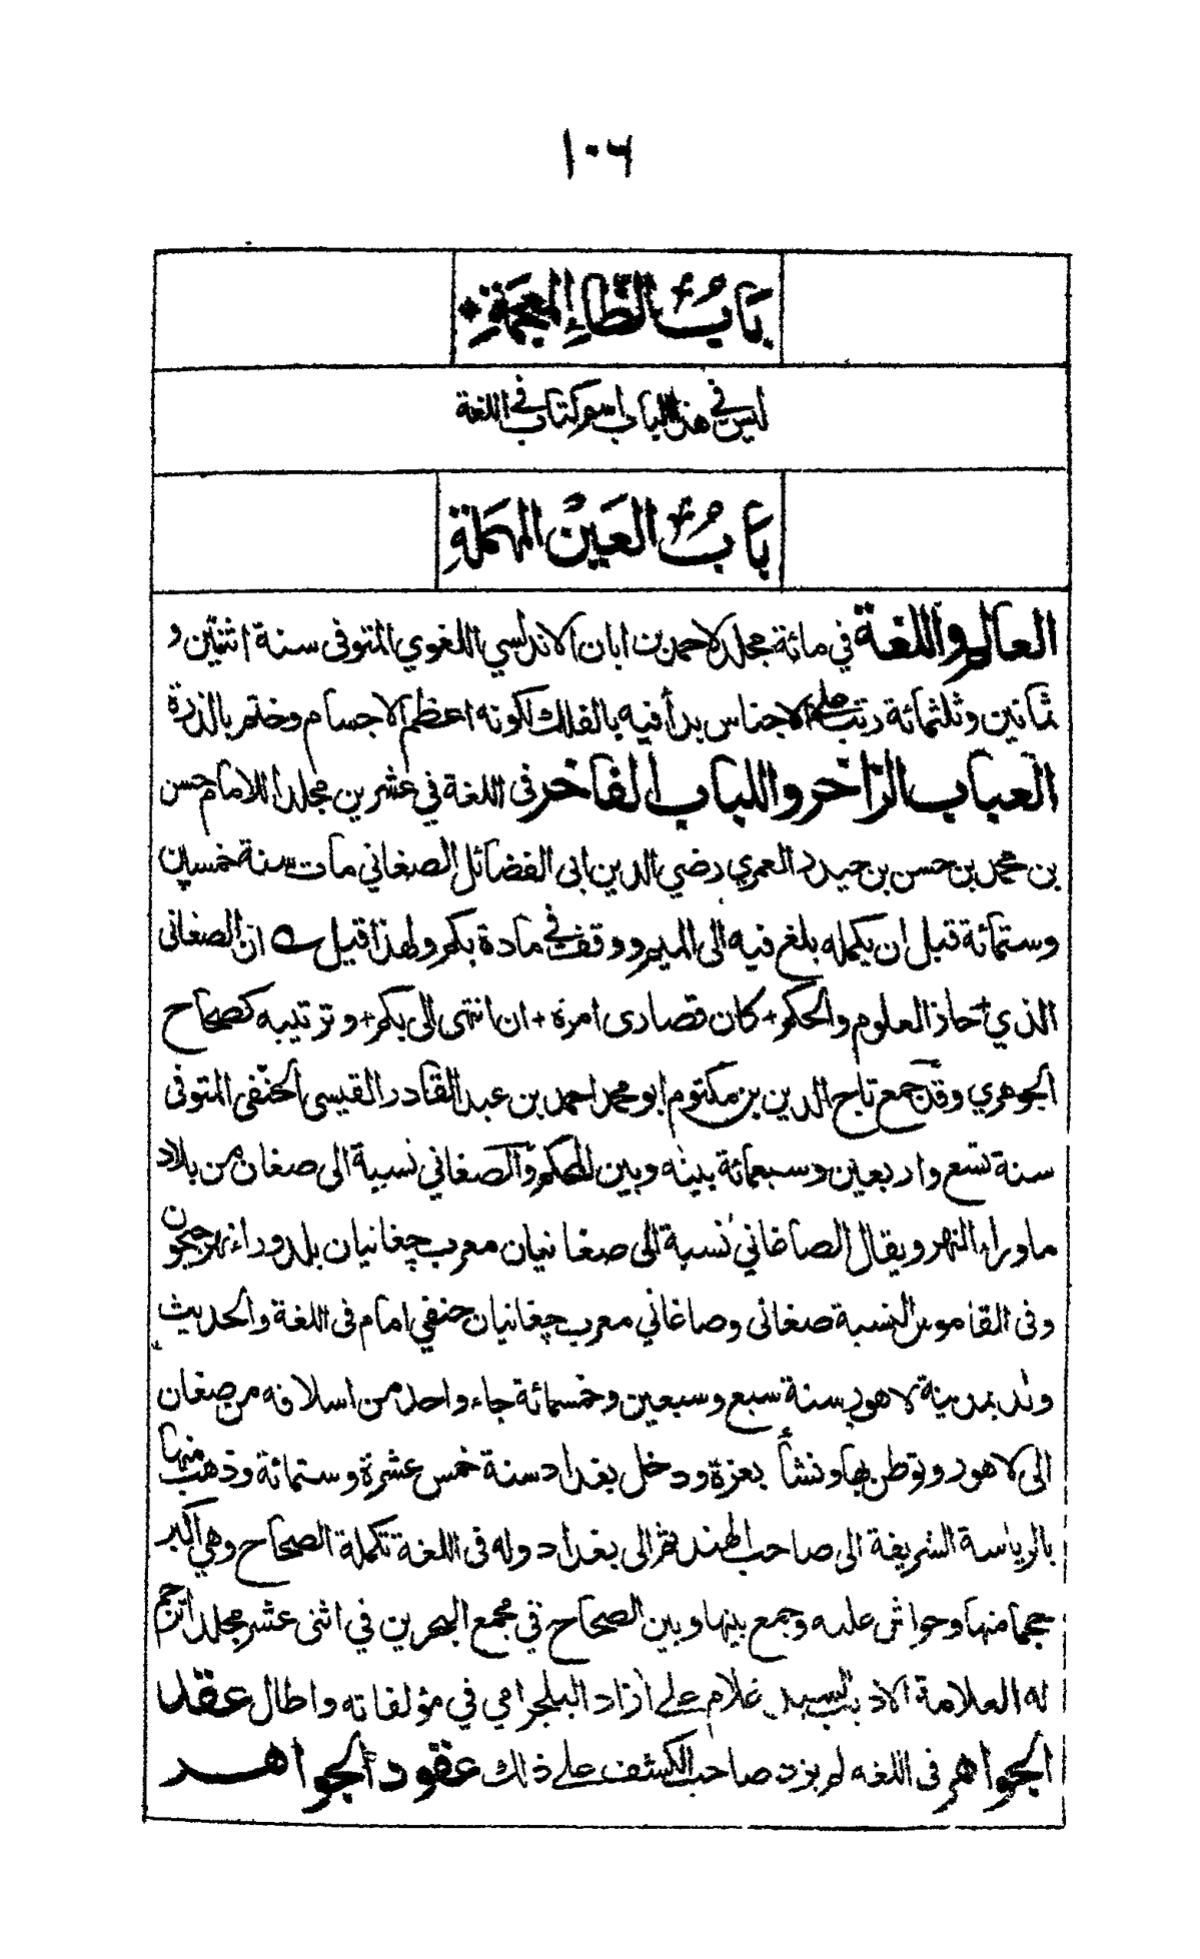 ١٠٦
بَابُ الظّاءِ المعجَمَةِ *
ليس في هذا الباب اسم كتاب في اللغة
بَابُ العَيْن المهمَلةِ
العالم واللغة في مائة مجلد لاحمد بن ابان الاندلسي اللغوي المتوفى سنة اثنتين و
ثمانين وثلثمائة رتب على الاجناس بدأ فيه بالفلك لكونه اعظم الاجسام وختم بالذرة
العباب الزاخر واللباب الفاخر فى اللغة في عشرين مجلدا للامام حسن
بن محمد بن حسن بن حيدر العمري رضي الدين ابى الفضائل الصغاني مات سنة خمسين
وستمائة قبل ان يكمله بلغ فيه الى الميم ووقف في مادة بكم ولهذا قيل ان الصغانى
الذي حاذ العلوم والحكم + كان قصارى امره + ان انتهى الى بكم + وترتيبه كصحاح
الجوهري وقد جمع تاج الدين بن مكتوم ابو محمد احمد بن عبد القادر القيسى الحنفى المتوفى
سنة تسع واربعين وسبعمائة بينه وبين المحكم والصغاني نسبة الى صغان من بلاد
ما وراء النهر ويقال الصاغاني نسبة الى صغانيان معرب چغانيان بلد وراء نهر جيحون
وفى القاموس النسبة صغانى وصاغاني معرب چغانيان حنفي امام فى اللغة والحديث
ولد بمدينة لاهور سنة سبع وسبعين وخمسمائة جاء واحد من اسلافه من صغان
الى لاهور وتوطن بها ونشأ بغزة ودخل بغداد سنة خمس عشرة وستمائة وذهب منها
بالرياسة الشريفة الى صاحب الهند ثم الى بغداد وله فى اللغة تكملة الصحاح وهي اكبر
حجما منها وحواش عليه وجمع بينها وبين الصحاح في مجمع البحرين في اثنى عشر مجلدا ترجم
له العلامة الاديب السيد غلام علي ازاد البلجرامي في مؤلفاته واطال عقد
الجواهر فى اللغه لم يزد صاحب الكشف على ذلك عقود الجواهر